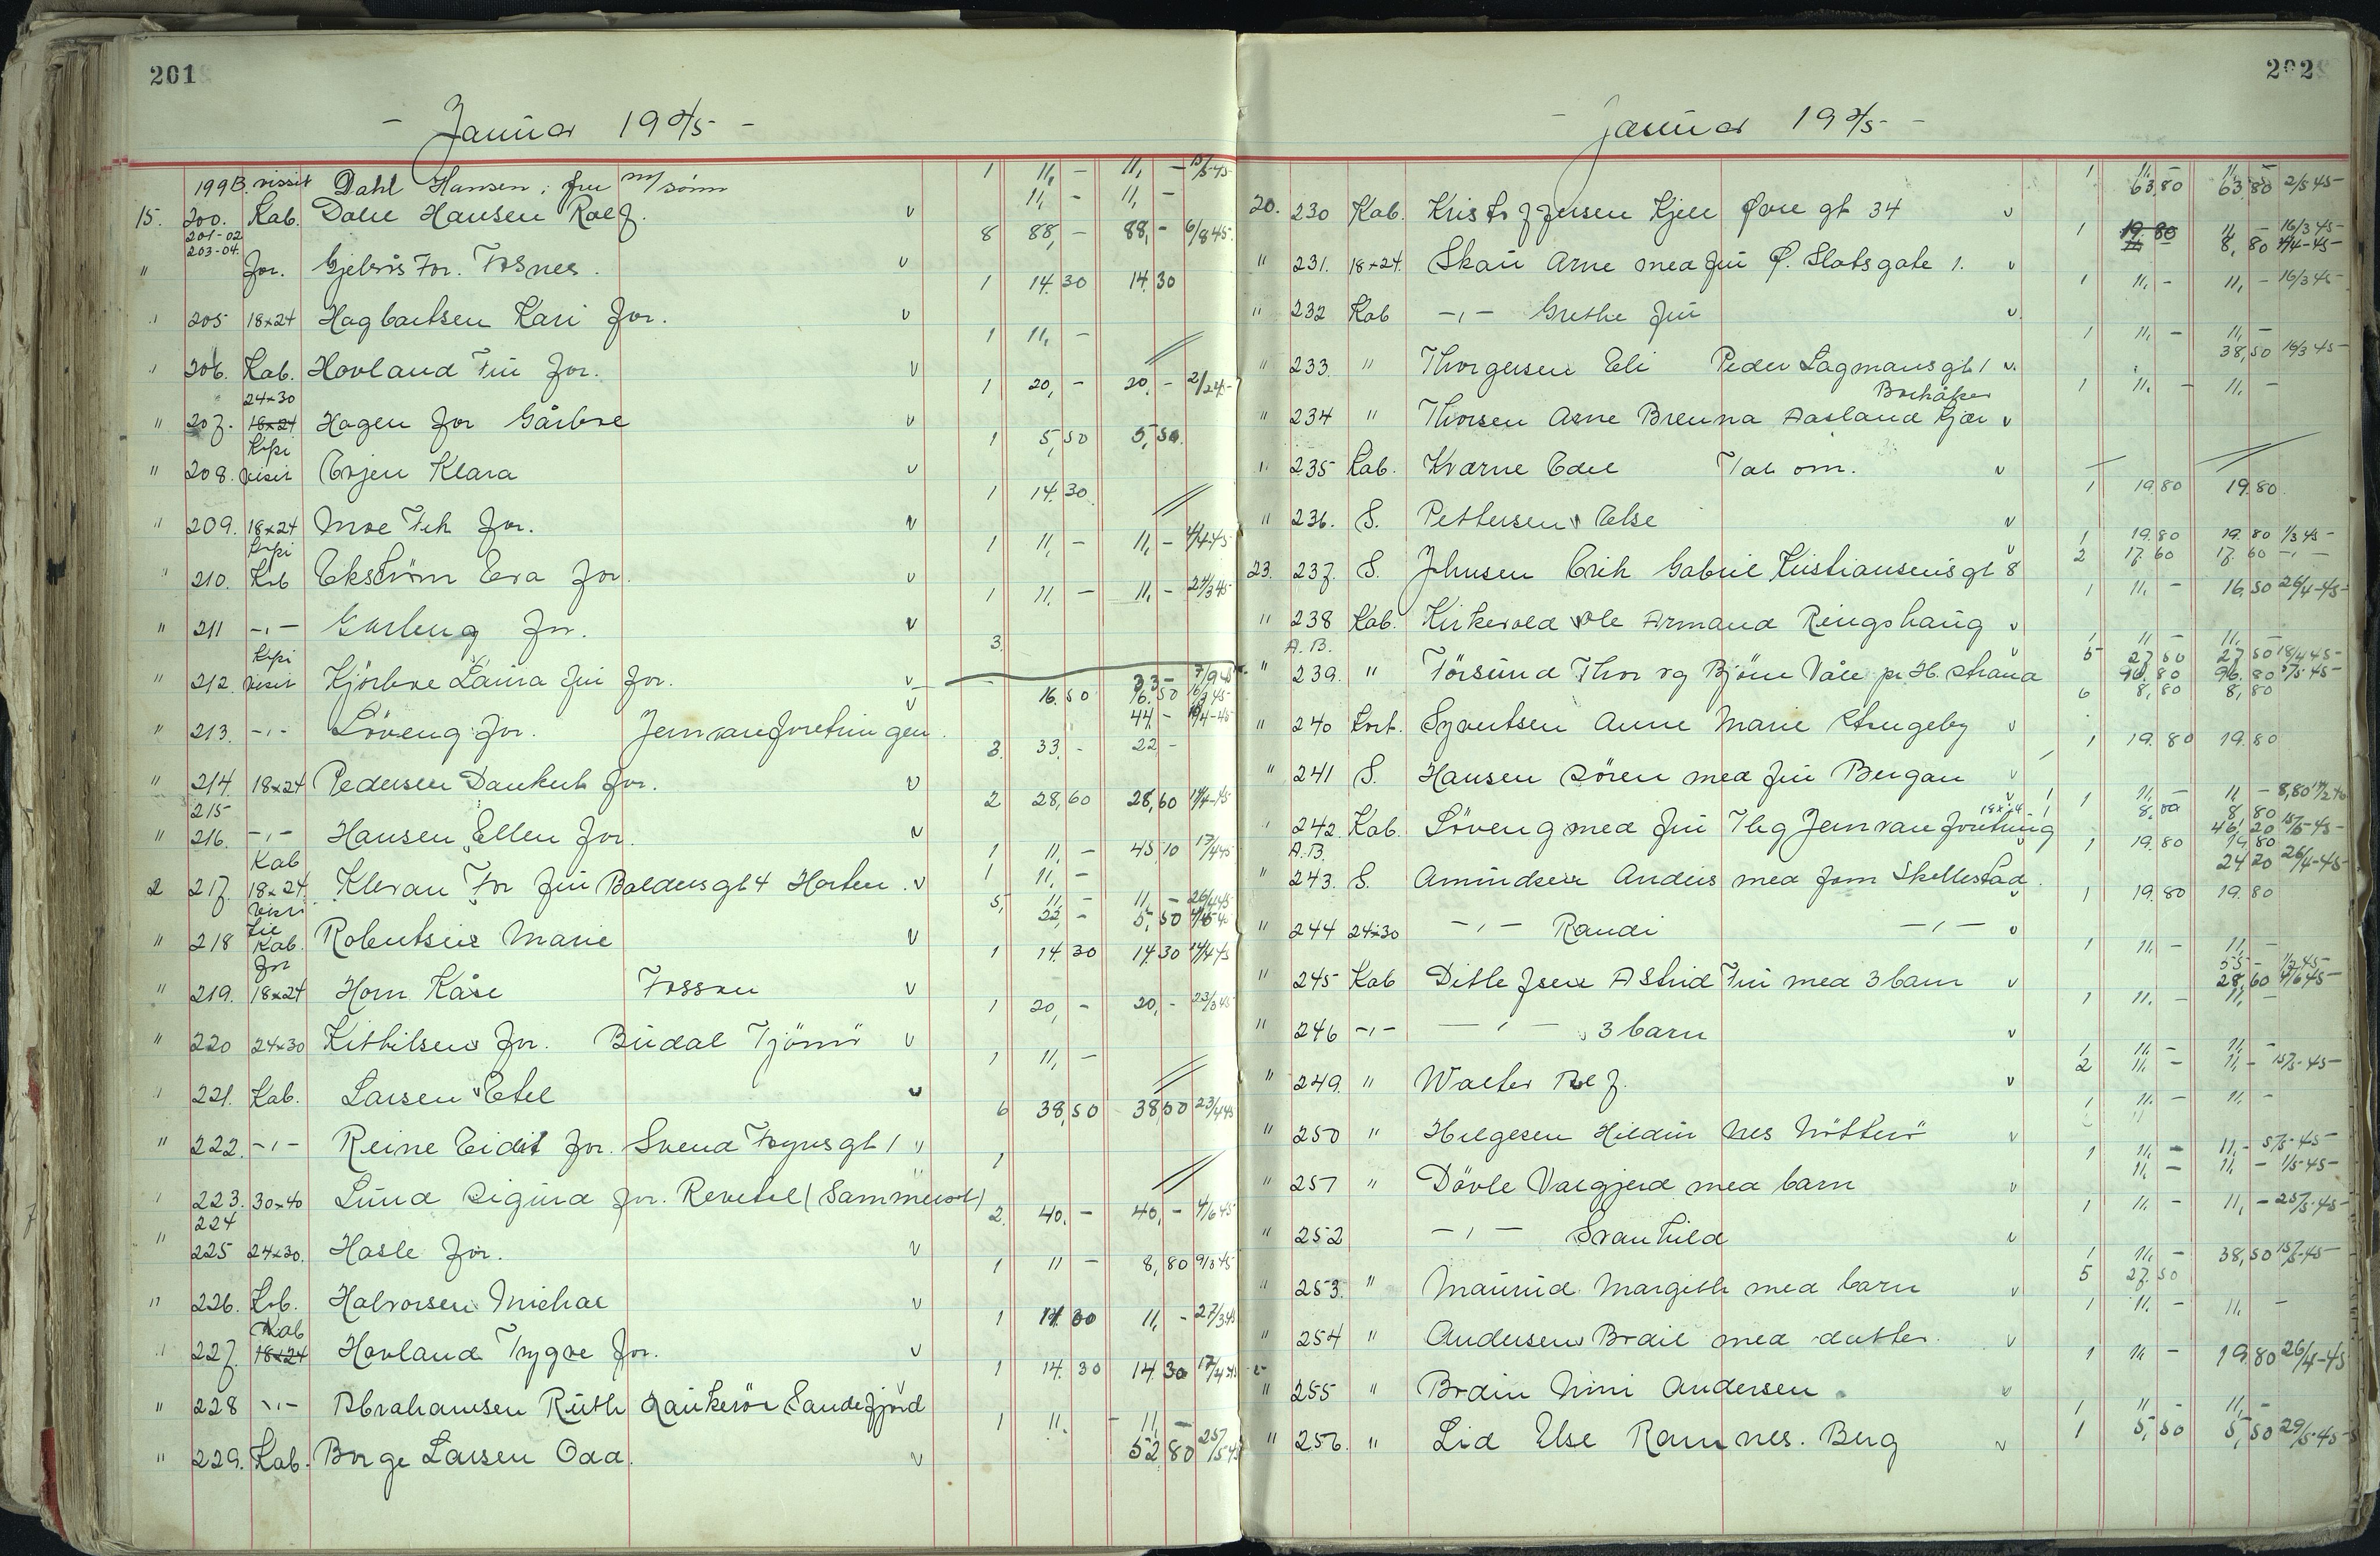 201
- Januar 1945 -
199 B. vissit Dahl Hansen, fru m/ sönn 1 11,- 11,- 15/5-45
15. 200. Kab. Dahl Hansen Rolf. v 11,- 11,-
201-02
203-04. " for. Gjelsös For. Tosnes. v 8 88,- 88,- 6/8 45.
" 205 18x24 Hagbartsen Kari for. v 1 14.30 14.30
" 206. Kab. Hovland Fru for. v 1 11,-
24x30
" 207. 18x24 Hagen for Gårboe v 1 20,- 20,- 2/2 45-
Kopi
" 208. visit Erjen Klara v 1 5,50 5,50.
" 209. 18x24 Moe Frk for. v 1 14.30
Kopi
" 210. Kab Ekström Eva for. v 1 11,- 11,- 4/4-45
" 211 -,- Garberg for. v 1 11,- 11,- 24/3 45
Kopi
" 212. visit Kjörboe Laura fru for. v 3.
33- 7/9 45
" 213. -,- Löveng for. Jernvareforetningen. v 16.50 16.50 16/3 45-
44-
" 214. 18x24 Pedersen Dankert for. v 3. 33.- 22-
215
" 216. -,- Hansen, Ellen for. v 2 28,60 28,60 14/4-45
Kab
2 217. 18x24 Klevan Tor fru Baldersgt 4 Horten. v 1 11,- 45,10 17/4 45
visit 1 11,-
til
" 218 Kab. Robertsen Marie v 5, 11,- 11,- 26/4 45
22,- 5,50
for
" 219. 18x24 Horn Kåre Fossan v 1 14.30 14.30 14/4 45
" 220 24x30 Kittilsen for. Budal Tjömö v 1 20,- 20,- 23/3 45
" 221. Kab. Larsen Etel v 1 11,-
" 222. -,- Reine Eidit for. Svend Foynsgt 1 v 6 38,50 38,50 23/4 45
" 223. 30x40 Lund Sigurd for. Revetal (Sammensl) 1
224
" 225 24x30. Hasle for. v 2. 40,- 40,- 4/6 45
" 226. Kab. Halvorsen Michal v 1 11- 8,80 9/3 45
Kab
" 227. 18x24 Hovland Trygve for. v 1 14.30 11,- 27/3 45
" 228 -,- Abrahamsen Ruth Raukeröi Sandefjord v 1 14.30 14.30 17/4 45
" 229. Kab. Borge Larsen Odd. v 1 11.- 11,-
52.80 25/5 45
202
- Januar 1945 -
1 11,- 11,-
20. 230 Kab. Kristoffersen Kjell Övre gt 34 v 63,80 63,80 2/5 45-
" 231. 18x24. Skau Arne med fru Ö. Slotsgate 1. v 1 19.80 11,- 16/3 45-
11- 8,80 4/4-45-
" 232 Kab -,- Grethe fru v. 1 11,- 11,- 16/3 45-
" 233. " Thorgersen Eli Peder Lagmansgt 1 v. 1 11,- 11,-
38,50 16/3 45-
Borhåker
" 234 " Thorsen Arne Brenna Aasland Kjær v 1 11.- 11,-
" 235 Kab. Kværne Edel Tat om. v -
" 236. S. Pettersen Else v 1 19.80 19.80.
23. 237. S. Johnsen Erik Gabriel Kristiansensgt 8 v 1 19.80 19.80 1/3 45-
2 17.60 17.60 -,-
" 238 Kab. Kirkevold Ole Armand Ringshaug v 1 11,- 16,50 26/4-45-
A.B.
" 239. " Försund Thor og Björn Våle pr H. strand v 1 11- 11,-
5 27,50 27,50 18/4 45-
96.80 96.80
" 240 Kort. Syvertsen Anne Marie Strugeby v 6 8,80 8,80
" 241 S. Hansen Sören med fru Bergan v 1 19.80 19.80
18x24
" 242. Kab. Löveng med fru Tbg Jernvareforetning v 1 11,- 11- 8,80
8.80 8.80
46,20 15/5-45-
A.B.
" 243. S. Amundsen Anders med fam Skellestad. v 1 19.80 19.80
24 20 26/4-45-
" 244 24x30 -,- Randi -,- v 1 19.80 19.80
" 245 Kab Ditlefsen Astrid Fru med 3 barn v 1 11,- 11,-
55-
28,60 4/6 45-
" 246 -,- -,- 3 barn v 1 11.- 11,-
" 249. " Walter Rolf. v 1 11.- 11,-
2 11.- 11,- 15/5-45-
" 250 " Helgesen Hildur Nes Nötterö v 1 11.- 11.-
" 251 " Dövle Valgjerd med barn v 1 11,- 11,- 5/5-45-
11,- 11,- 1/5-45-
" 252 -,- Svanhild v 1 11,- 11,- 25/5-45-
" 253. " Maurud Margith med barn v 1 11,- 38,50 15/5-45-
5 27.50
" 254 " Andersen Brdie med datter. v 1 11.- 11.-
" 255 " Brdin Nini Andersen. v 1 11- 19.80 26/4-45
" 256. " Lid Else Ramnes. Berg v 1 11- 11,-
1 5,50 5,50 29/5-45-